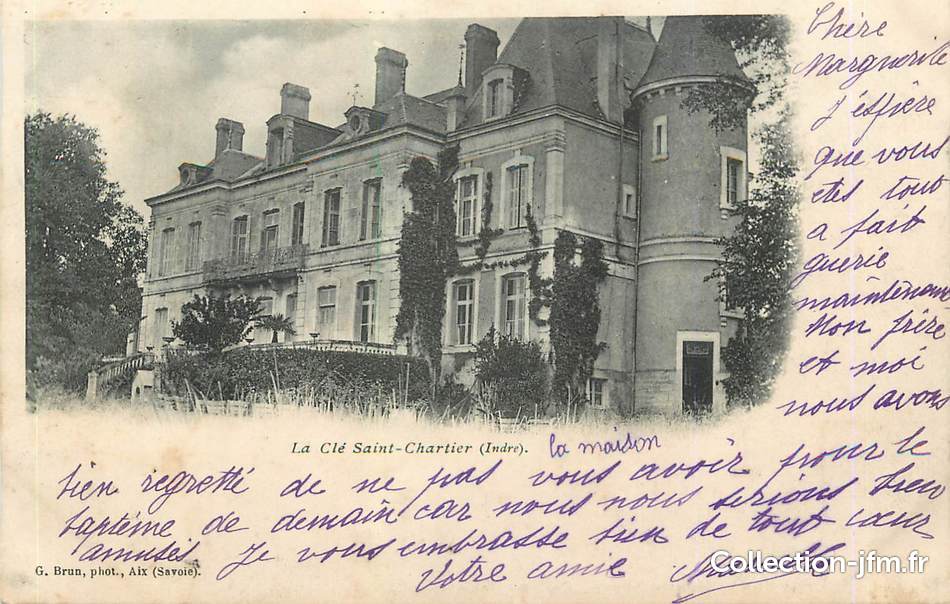 Chère
Marguerite
J'espère
que vous
etes tout
a fait
guerie
maintenant
Mon frère
et moi
nous avons
La Clé Saint-Chartier (Indre).
la maison
bien regretté de ne pas vous avoir pour le
baptéme de demain car nous nous serions bien
amusés Je vous embrasse bien de tout cœur
Votre amie
G. Brun, phot., Aix (Savoie).
Collection-jfm.fr